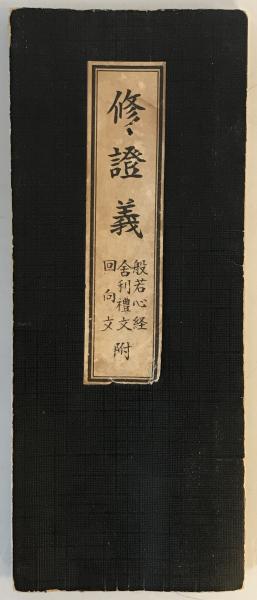 修證義
般若心経
舎利禮文
回向文
附